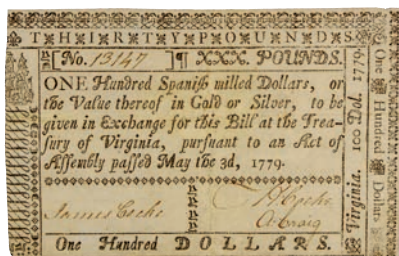 THIRTY POUNDS
[No. 13147 ]¶ XXX. POUNDS.
ONE Hundred Spanish milled Dollars, or
the Value thereof in Gold or Silver, to be
given in Exchange for this Bill at the Trea-
sury of Virginia, pursuant to an Act of
Assembly passed May the 3d, 1779.
James Cocke
A Craig
One Hundred DOLLARS.
Virginia. 100 Dol. 1779.
One Hundred Dollars